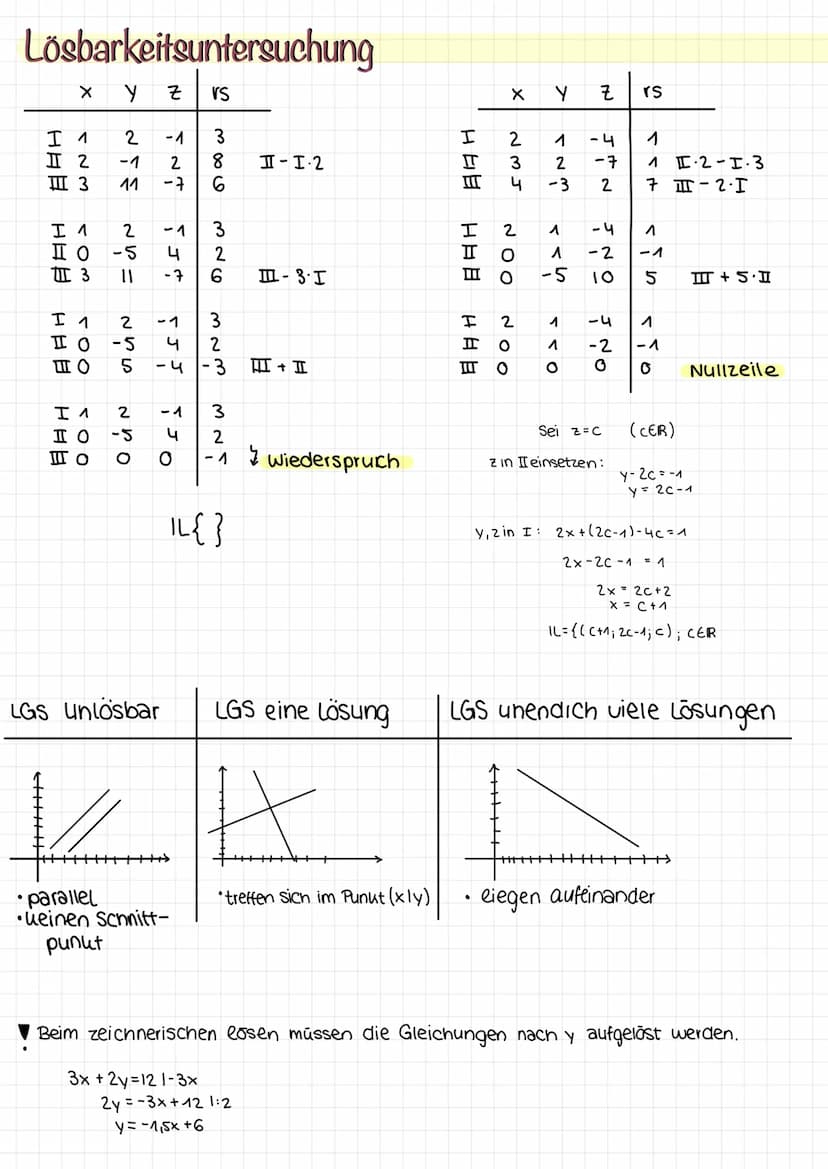 Lösbarkeitsuntersuchung
x y z rs
I 1 2 -1 3
II 2 -1 2 8 II-I·2
III 3 11 -7 6
I 1 2 -1 3
II 0 -5 4 2
III 3 11 -7 6 III-3·I
I 1 2 -1 3
II 0 -5 4 2
III 0 5 -4 -3 III+II
I 1 2 -1 3
II 0 -5 4 2
III 0 0 0 -1 ↯ Wiederspruch
IL{ }
x y z rs
I 2 1 -4 1
II 3 2 -7 1 II·2-I·3
III 4 -3 2 7 III-2·I
I 2 1 -4 1
II 0 1 -2 -1
III 0 -5 10 5 III+5·II
I 2 1 -4 1
II 0 1 -2 -1
III 0 0 0 0 Nullzeile
Sei z=c (c∈R)
z in II einsetzen:
y-2c=-1
y=2c-1
y,z in I: 2x+(2c-1)-4c=1
2x-2c-1=1
2x=2c+2
x=c+1
IL={(c+1;2c-1;c); c∈R
LGS unlösbar
LGS eine Lösung
LGS unendich viele Lösungen
• parallel
• keinen Schnitt-
punkt
• treffen sich im Punkt (x|y)
• liegen aufeinander
! Beim zeichnerischen lösen müssen die Gleichungen nach y aufgelöst werden.
3x+2y=12 |-3x
2y=-3x+12 |:2
y=-1,5x+6